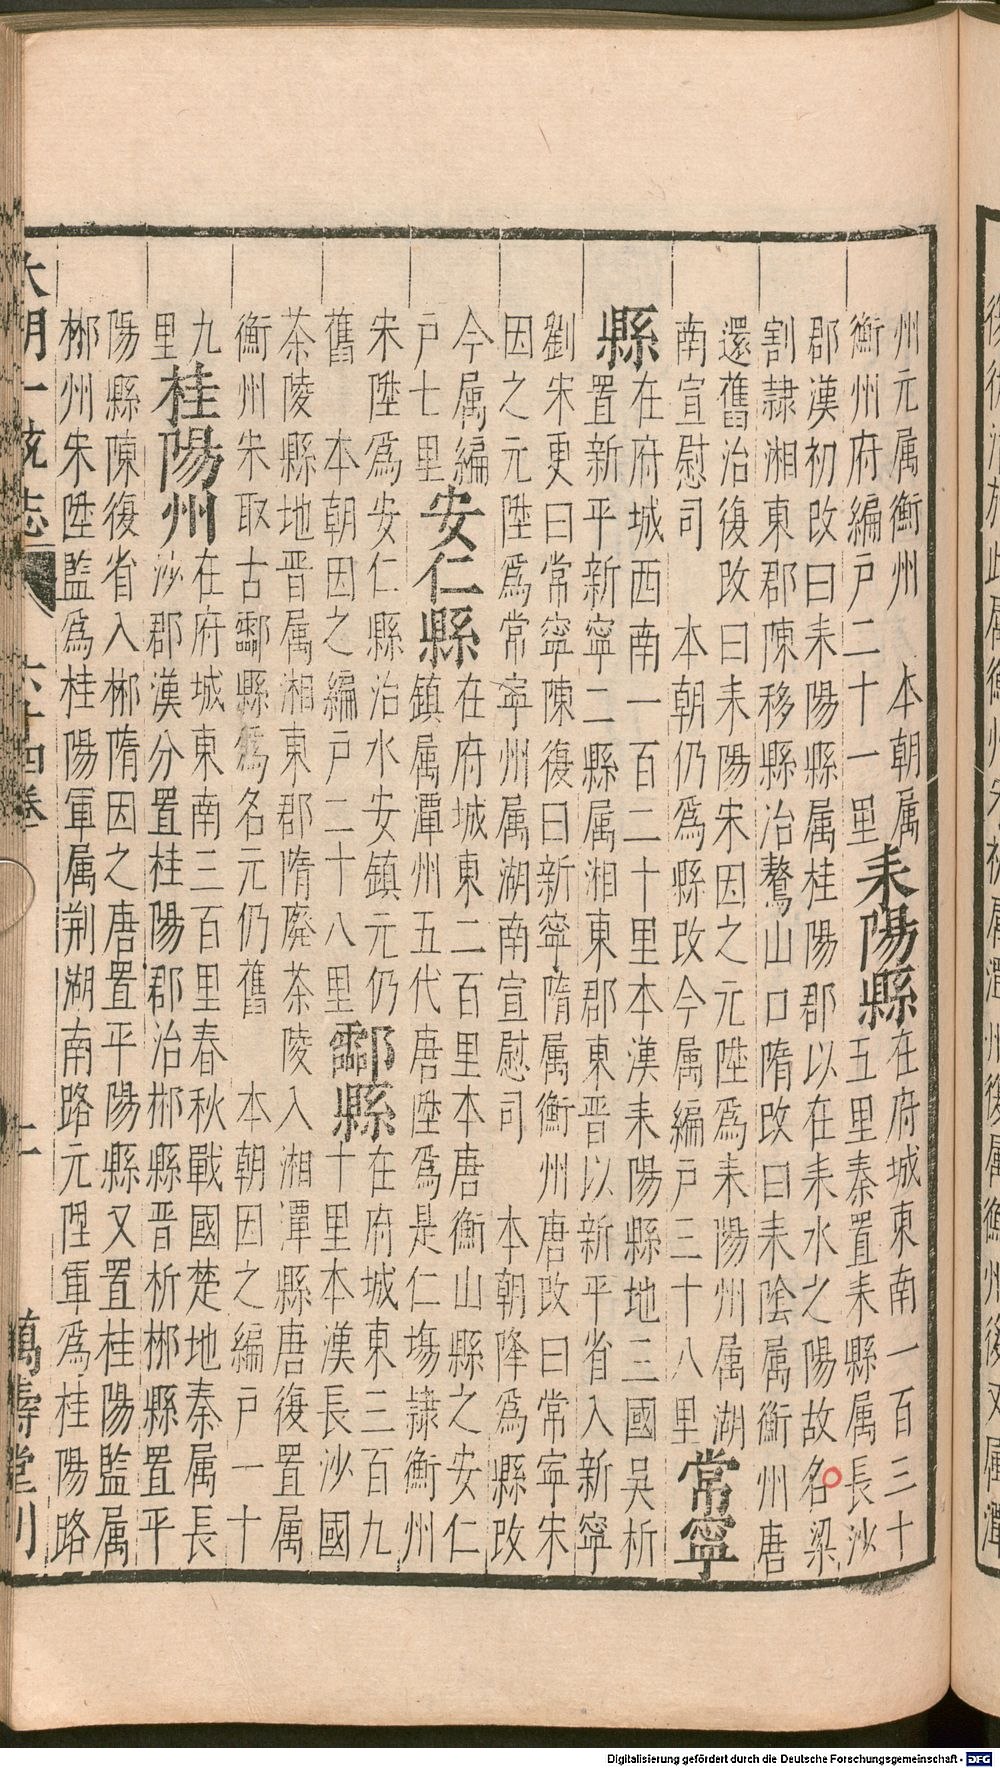 州元属衡州　本朝属
衡州府編戸二十一里
耒陽縣
在府城東南一百三十
五里秦置耒縣属長沙
郡漢初改曰耒陽縣属桂陽郡以在耒水之陽故名梁
割隷湘東郡陳移縣治鰲山口隋改曰耒陰属衡州唐
還舊治復改曰耒陽宋因之元陞爲耒陽州属湖
南宣慰司　本朝仍爲縣改今属編戸三十八里
常寧
縣
在府城西南一百二十里本漢耒陽縣地三國吳析
置新平新寧二縣属湘東郡東晋以新平省入新寧
劉宋更曰常寧陳復曰新寧隋属衡州唐改曰常寧宋
因之元陞爲常寧州属湖南宣慰司　本朝降爲縣改
今属編
戸七里
安仁縣
在府城東二百里本唐衡山縣之安仁
鎮属潭州五代唐陞爲是仁塲隷衡州
宋陞爲安仁縣治水安鎮元仍
舊　本朝因之編戸二十八里
酃縣
在府城東三百九
十里本漢長沙國
茶陵縣地晋属湘東郡隋廢茶陵入湘潭縣唐復置属
衡州宋取古酃縣爲名元仍舊　本朝因之編戸一十
九
里
桂陽州
在府城東南三百里春秋戰國楚地秦属長
沙郡漢分置桂陽郡治郴縣晋析郴縣置平
陽縣陳復省入郴隋因之唐置平陽縣又置桂陽監属
郴州宋陞監爲桂陽軍属荆湖南路元陞軍爲桂陽路
大明一統志　六十四卷　萬壽堂刊
Digitalisierung gefördert durch die Deutsche Forschungsgemeinschaft - DFG